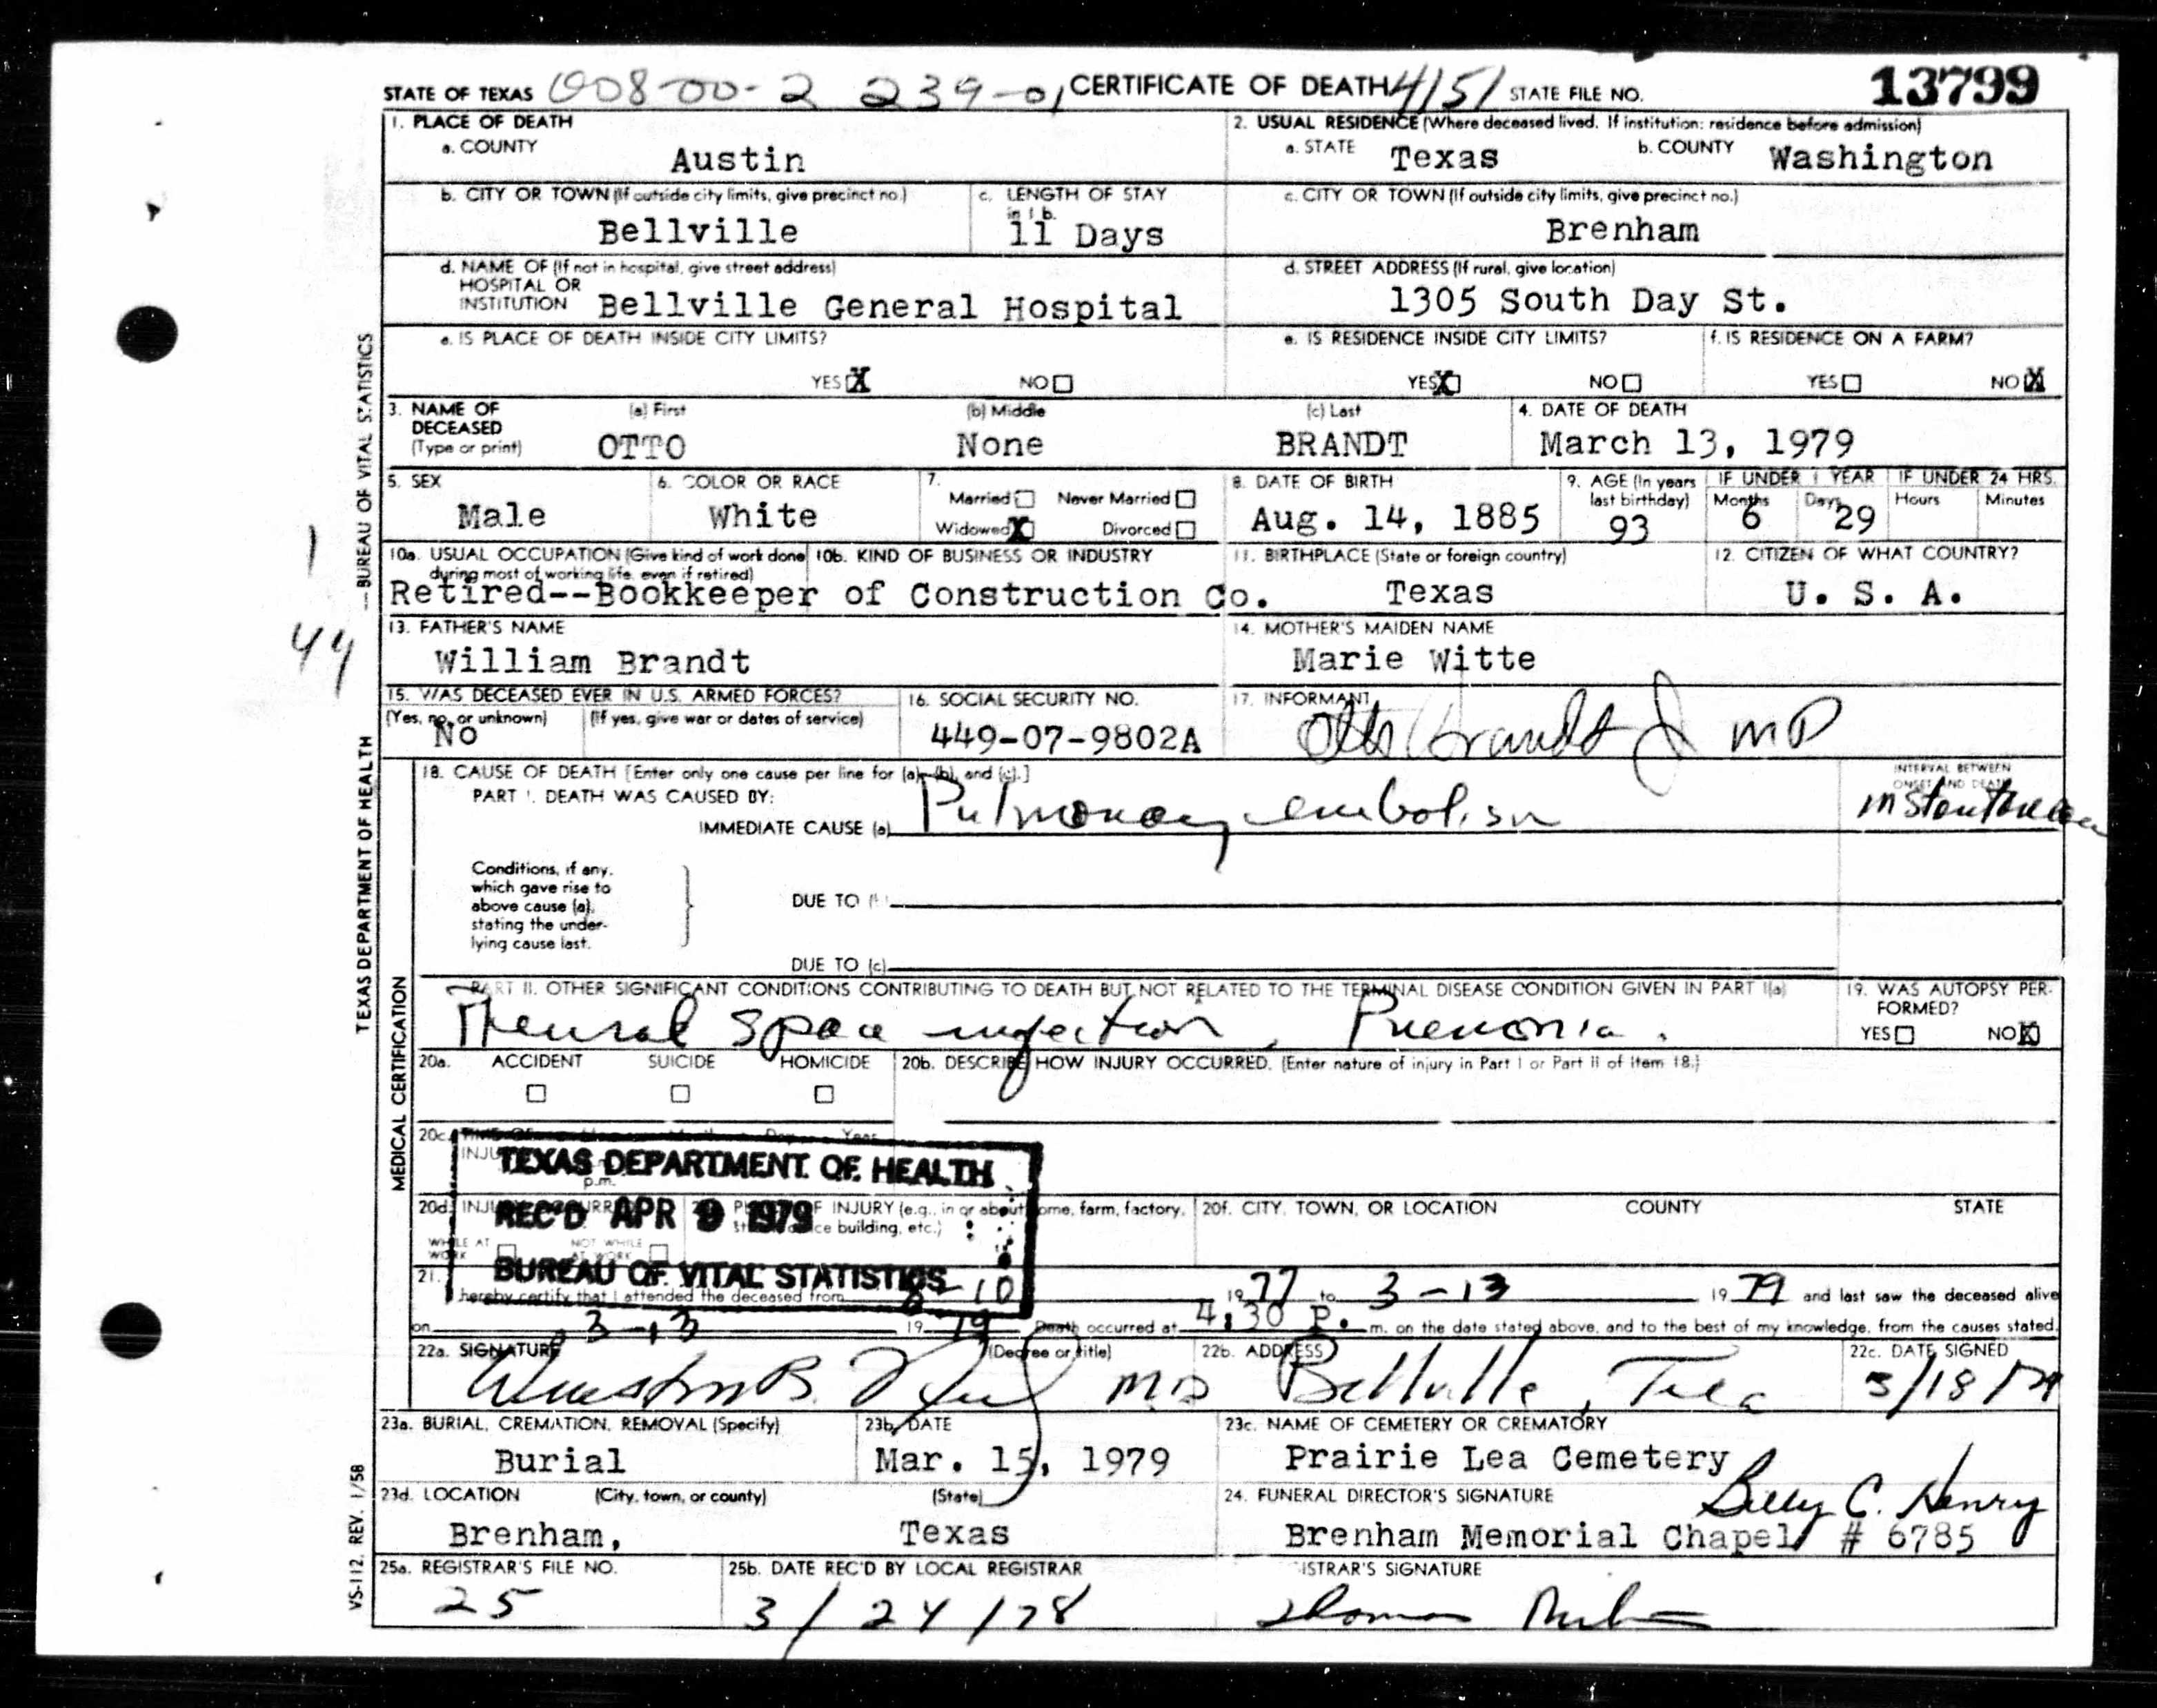 STATE OF TEXAS 008-00-2 239-01 CERTIFICATE OF DEATH 4151 STATE FILE NO. 13799
1. PLACE OF DEATH
a. COUNTY
Austin
2. USUAL RESIDENCE (Where deceased lived. If institution: residence before admission)
a. STATE Texas b. COUNTY Washington
b. CITY OR TOWN (If outside city limits, give precinct no.)
Bellville
c. LENGTH OF STAY
in 1 b.
11 Days
c. CITY OR TOWN (If outside city limits, give precinct no.)
Brenham
d. NAME OF (If not in hospital, give street address)
HOSPITAL OR
INSTITUTION Bellville General Hospital
d. STREET ADDRESS (If rural, give location)
1305 South Day St.
e. IS PLACE OF DEATH INSIDE CITY LIMITS?
YES X NO
e. IS RESIDENCE INSIDE CITY LIMITS?
YES X NO
f. IS RESIDENCE ON A FARM?
YES NO X
3. NAME OF
DECEASED
(Type or print)
(a) First
OTTO
(b) Middle
None
(c) Last
BRANDT
4. DATE OF DEATH
March 13, 1979
5. SEX
Male
6. COLOR OR RACE
White
7.
Married Never Married
Widowed X Divorced
8. DATE OF BIRTH
Aug. 14, 1885
9. AGE (In years
last birthday)
93
IF UNDER 1 YEAR
Months Days
6 29
IF UNDER 24 HRS.
Hours Minutes
10a. USUAL OCCUPATION (Give kind of work done
during most of working life, even if retired)
10b. KIND OF BUSINESS OR INDUSTRY
Retired--Bookkeeper of Construction Co.
11. BIRTHPLACE (State or foreign country)
Texas
12. CITIZEN OF WHAT COUNTRY?
U. S. A.
13. FATHER'S NAME
William Brandt
14. MOTHER'S MAIDEN NAME
Marie Witte
15. WAS DECEASED EVER IN U.S. ARMED FORCES?
(Yes, no, or unknown) (If yes, give war or dates of service)
No
16. SOCIAL SECURITY NO.
449-07-9802A
17. INFORMANT
Otto Brandt J MD
18. CAUSE OF DEATH [Enter only one cause per line for (a), (b), and (c).]
PART I. DEATH WAS CAUSED BY:
IMMEDIATE CAUSE (a) Pulmonary embolism
INTERVAL BETWEEN
ONSET AND DEATH
Conditions, if any,
which gave rise to
above cause (a),
stating the under-
lying cause last.
DUE TO
DUE TO (c)
PART II. OTHER SIGNIFICANT CONDITIONS CONTRIBUTING TO DEATH BUT NOT RELATED TO THE TERMINAL DISEASE CONDITION GIVEN IN PART I(a)
space infection, Pneumonia.
19. WAS AUTOPSY PER-
FORMED?
YES NO X
20a. ACCIDENT SUICIDE HOMICIDE
20b. DESCRIBE HOW INJURY OCCURRED. (Enter nature of injury in Part I or Part II of item 18.)
20c.
p.m.
TEXAS DEPARTMENT OF HEALTH
REC'D APR 9 1979
BUREAU OF VITAL STATISTICS
20d. INJURY OCCURRED
WHILE AT
WORK
NOT WHILE
AT WORK
PLACE OF INJURY (e.g., in or about home, farm, factory,
building, etc.)
20f. CITY, TOWN, OR LOCATION COUNTY STATE
21.
hereby certify that I attended the deceased from 6-10 1977 to 3-13 1979 and last saw the deceased alive
on 3-13 1979 Death occurred at 4:30 P. m. on the date stated above, and to the best of my knowledge, from the causes stated.
22a. SIGNATURE (Degree or title)
MD
22b. ADDRESS
Bellville, Tex
22c. DATE SIGNED
3/18/79
23a. BURIAL, CREMATION, REMOVAL (Specify)
Burial
23b. DATE
Mar. 15, 1979
23c. NAME OF CEMETERY OR CREMATORY
Prairie Lea Cemetery
23d. LOCATION (City, town, or county) (State)
Brenham, Texas
24. FUNERAL DIRECTOR'S SIGNATURE
Billy C. Henry
Brenham Memorial Chapel # 6785
25a. REGISTRAR'S FILE NO.
25
25b. DATE REC'D BY LOCAL REGISTRAR
3/24/78
ISTRAR'S SIGNATURE
Thomas
TEXAS DEPARTMENT OF HEALTH—BUREAU OF VITAL STATISTICS
MEDICAL CERTIFICATION
VS-112, REV. 1/58
1
44